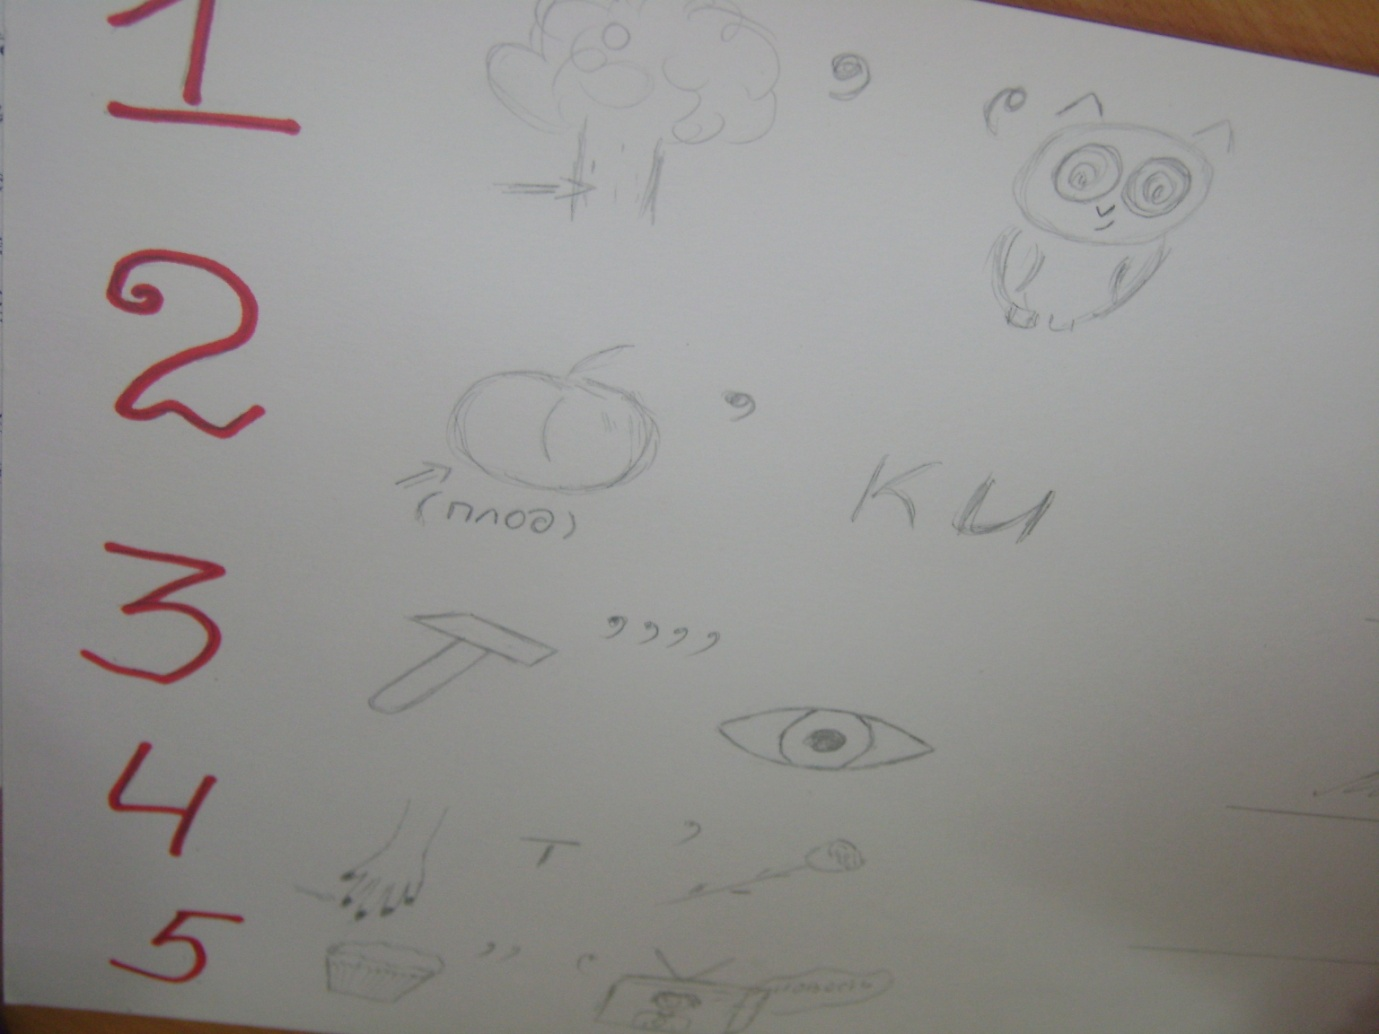 1 , ,
2 ,
(плод)
ки
3 , , , ,
4 т ,
5 , , ,